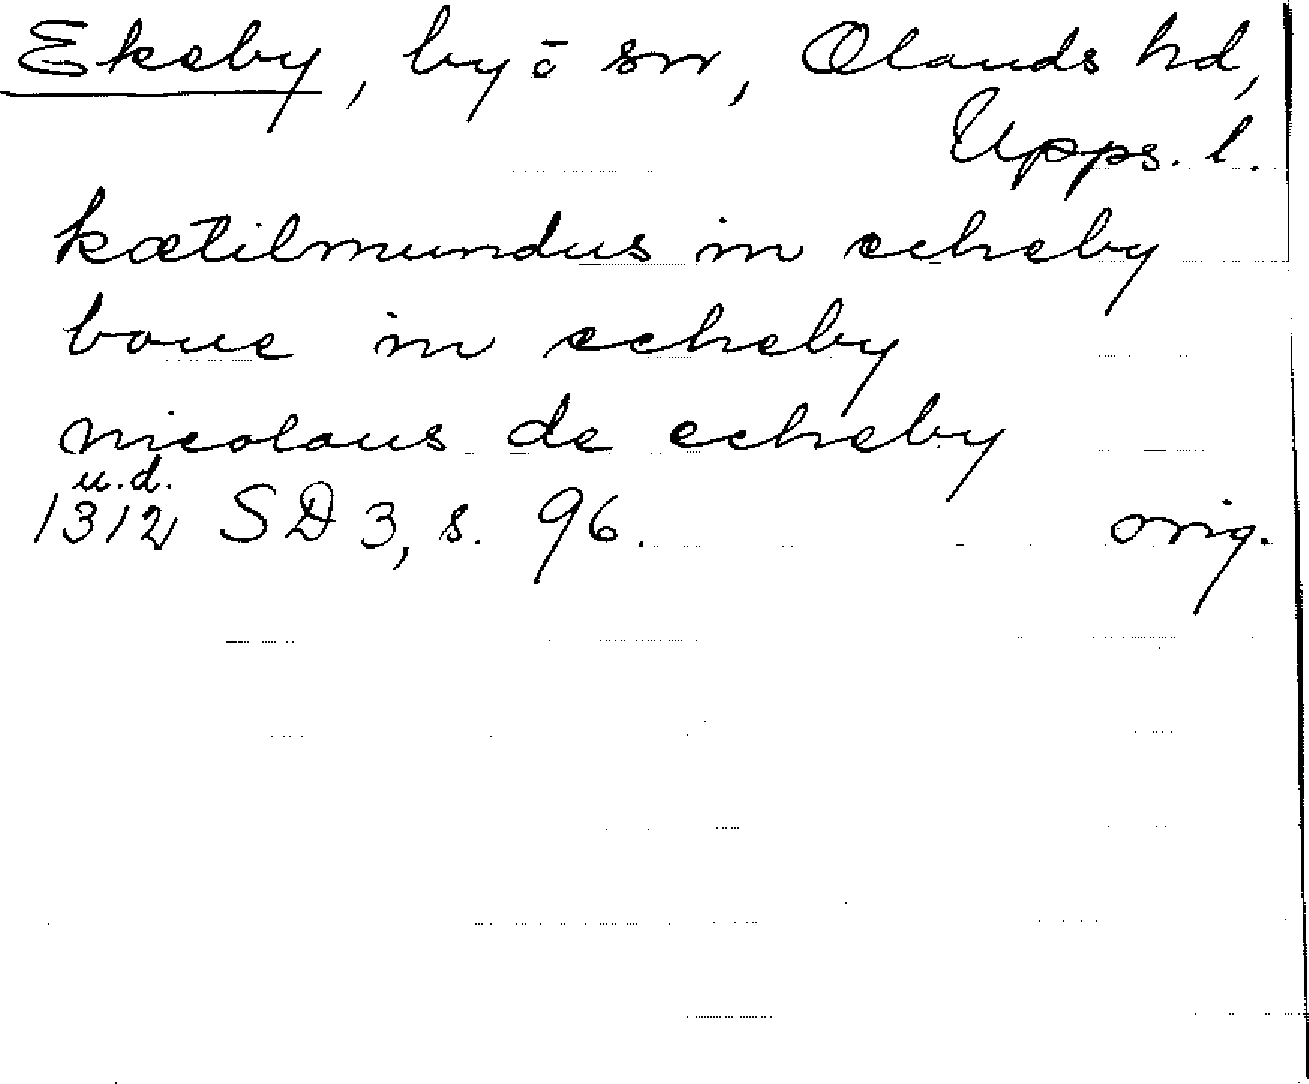 Ekeby, by o sn, Olands hd,
Upps. l.
kætilmundus in echeby
boue in echeby
nicolaus de echeby
u.d.
1312 SD 3, s. 96. orig.